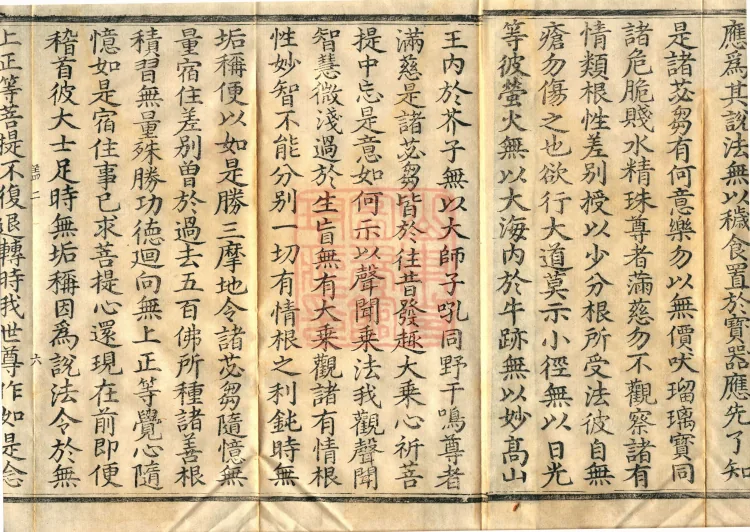 應爲其說法無以穢食置於寶器應先了知
是諸苾芻有何意樂勿以無價吠瑠璃寶同
諸危脆賤水精珠尊者滿慈勿不觀察諸有
情類根性差別授以少分根所受法彼自無
瘡勿傷之也欲行大道莫示小徑無以日光
等彼螢火無以大海內於牛跡無以妙高山
王內於芥子無以大師子吼同野干鳴尊者
滿慈是諸苾芻皆於往昔發趣大乘心祈菩
提中忘是意如何示以聲聞乘法我觀聲聞
智慧微淺過於生盲無有大乘觀諸有情根
性妙智不能分別一切有情根之利鈍時無
垢稱便以如是勝三摩地令諸苾芻隨憶無
量宿住差別曾於過去五百佛所種諸善根
積習無量殊勝功德迴向無上正等覺心隨
憶如是宿住事已求菩提心還現在前即便
稽首彼大士足時無垢稱因爲說法令於無
二 六
上正等菩提不復退轉時我世尊作如是念